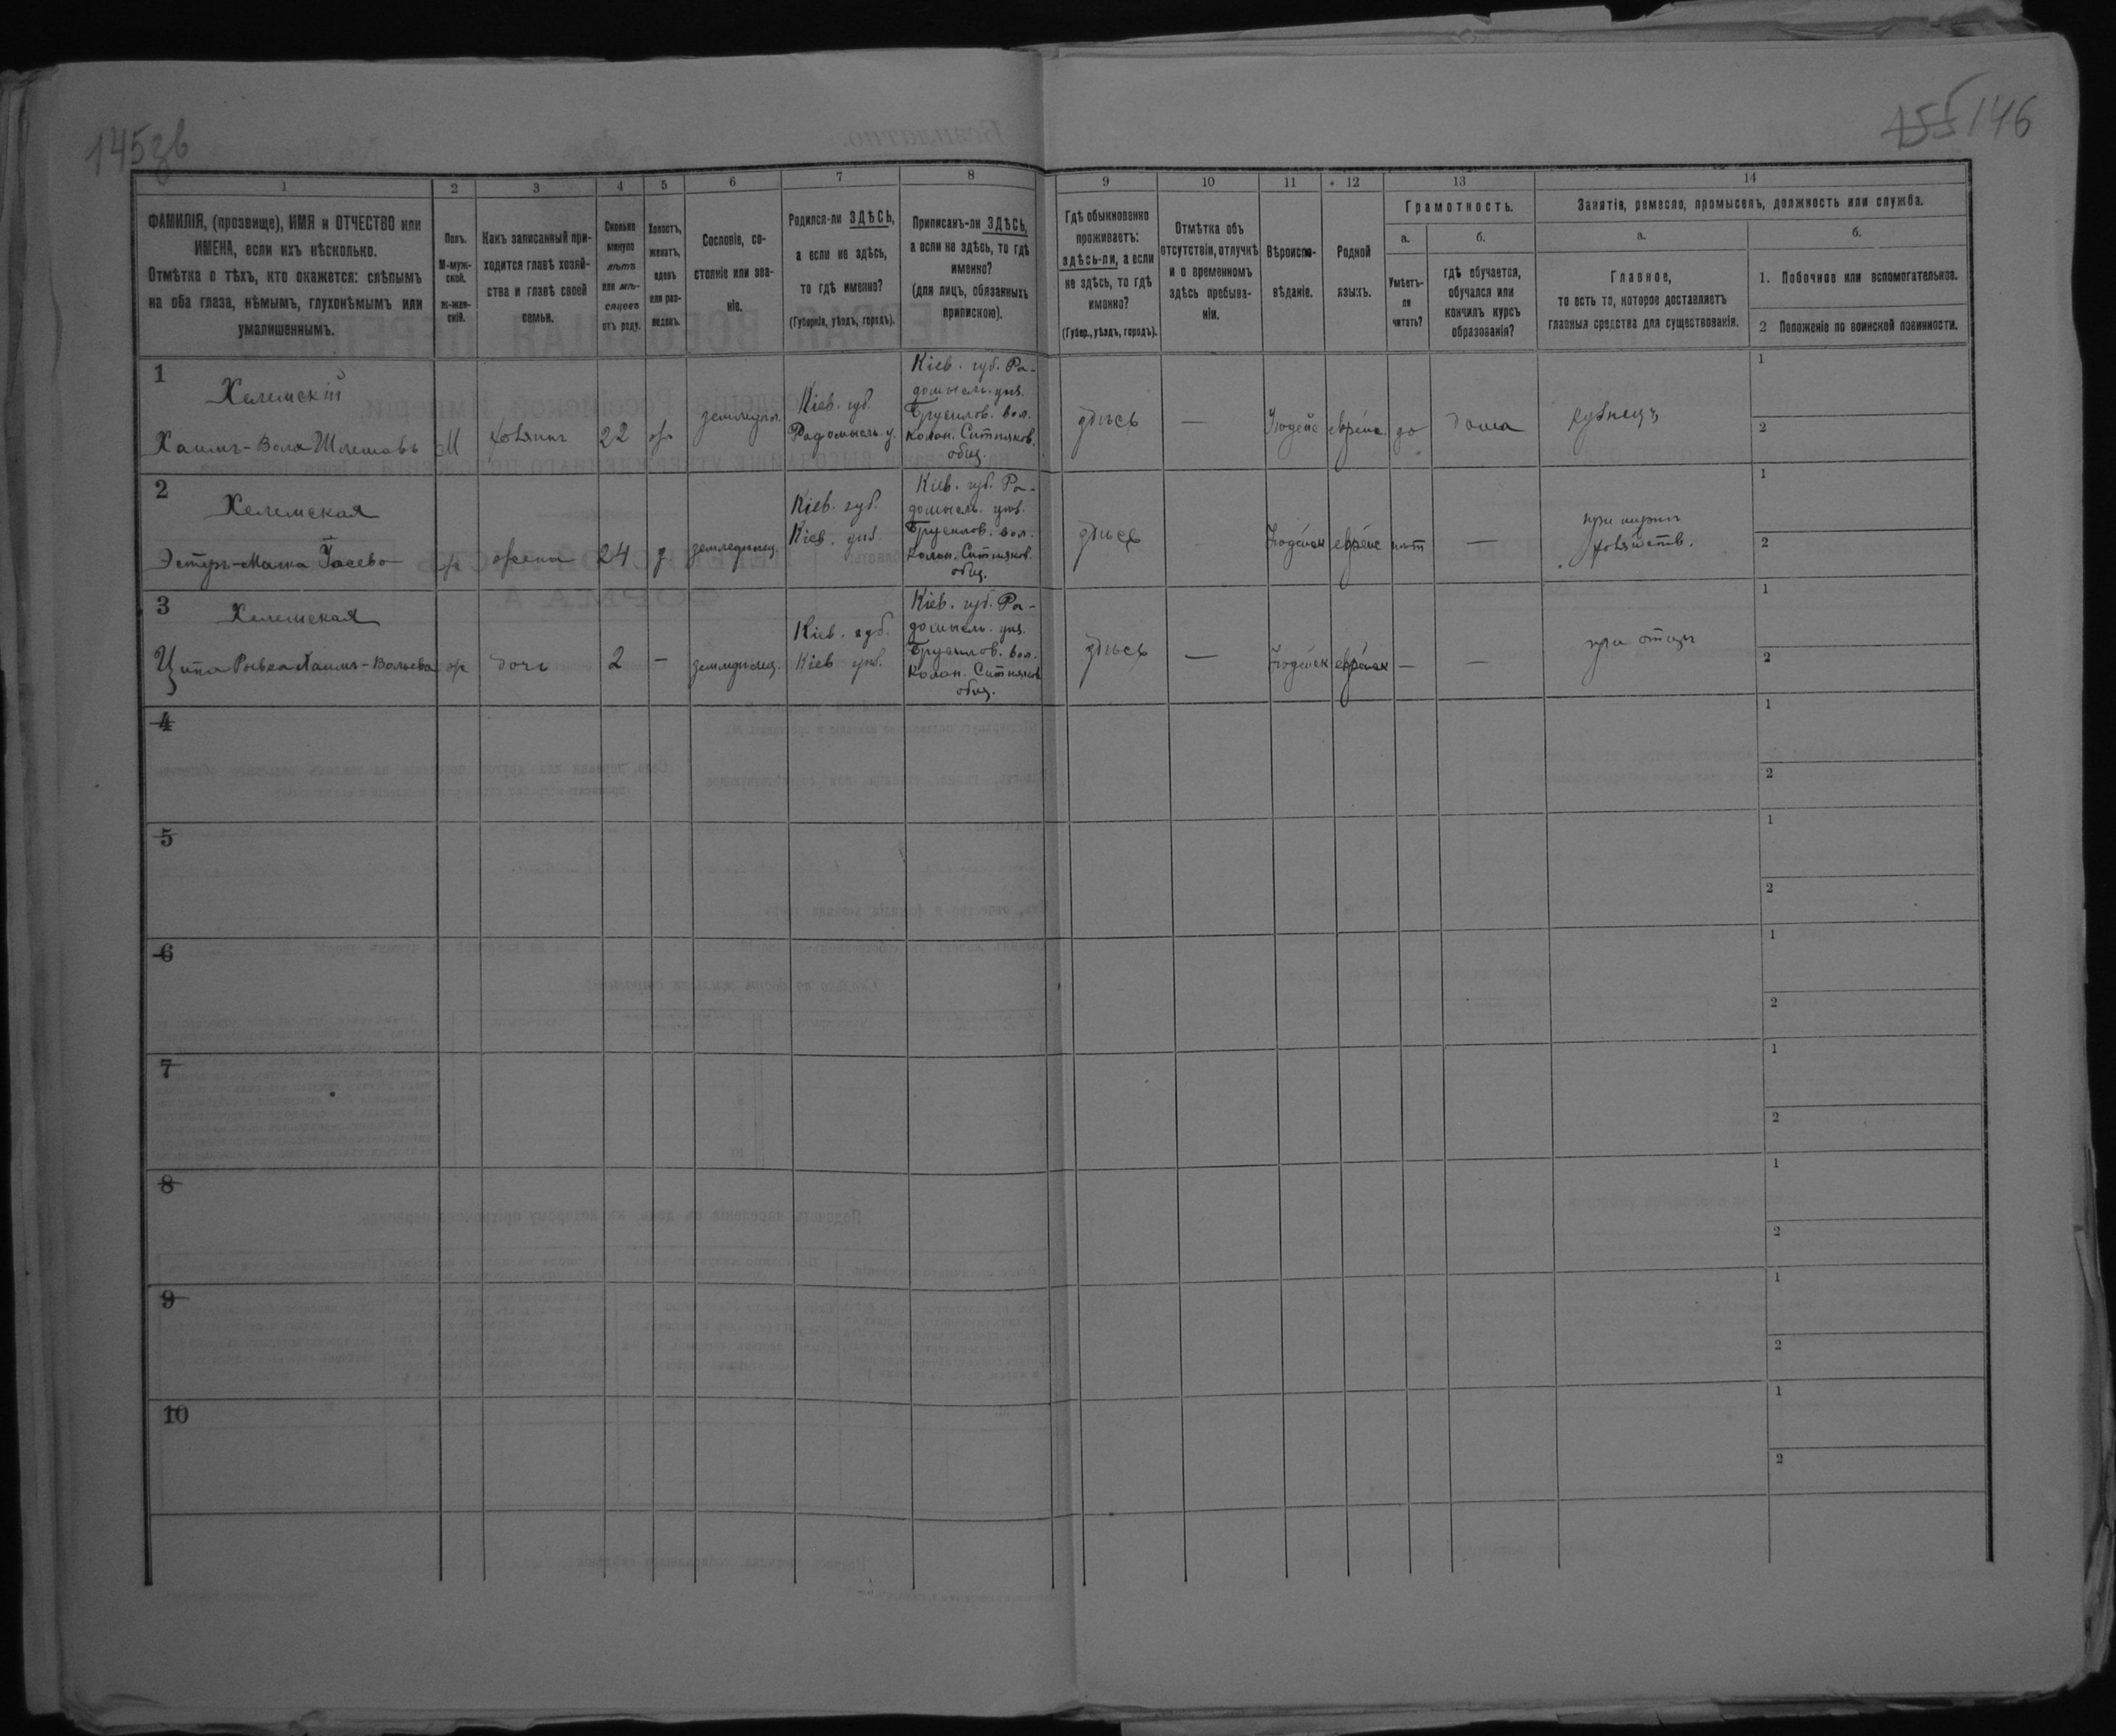 145зв
155 146
1 2 3 4 5 6 7 8 9 10 11 12 13 14
ФАМИЛІЯ, (прозвище), ИМЯ и ОТЧЕСТВО или
ИМЕНА, если ихъ нѣсколько.
Отмѣтка о тѣхъ, кто окажется: слѣпымъ
на оба глаза, нѣмымъ, глухонѣмымъ или
умалишеннымъ.
Полъ.
М-муж-
ской.
ж-жен-
скій.
Какъ записанный при-
ходится главѣ хозяй-
ства и главѣ своей
семьи.
Сколько
минуло
лѣтъ
или мѣ-
сяцевъ
отъ роду.
Холостъ,
женатъ,
вдовъ
или раз-
веденъ.
Сословіе, со-
стояніе или зва-
ніе.
Родился-ли ЗДѢСЬ,
а если не здѣсь,
то гдѣ именно?
(Губернія, уѣздъ, городъ).
Приписанъ-ли ЗДѢСЬ,
а если не здѣсь, то гдѣ
именно?
(для лицъ, обязанныхъ
припискою).
Гдѣ обыкновенно
проживаетъ:
здѣсь-ли, а если
не здѣсь, то гдѣ
именно?
(Губер., уѣздъ, городъ).
Отмѣтка объ
отсутствіи, отлучкѣ
и о временномъ
здѣсь пребыва-
ніи.
Вѣроиспо-
вѣданіе.
Родной
языкъ.
Грамотность.
а.
Умѣетъ-
ли
читать?
б.
гдѣ обучается,
обучался или
кончилъ курсъ
образованія?
Занятіе, ремесло, промыселъ, должность или служба.
а.
Главное,
то есть то, которое доставляетъ
главныя средства для существованія.
б.
1. Побочное или вспомогательное.
2 Положеніе по воинской повинности.
1
Хелемскій
Хаимъ-Волъ
М
хозяинъ
22
ж
Кіев. губ.
Радомысль. у.
Кіев. губ. Ра-
домысль. уѣз.
Брусилов. вол.
Колон. Ситняков.
общ.
здѣсь
—
Іюдейс
еврейс
да
дома
кузнецъ
1
2
2
Хелемская
Эстеръ-Малка
ж
жена
24
з
земледѣлец.
Кіев. губ.
Кіев. уѣз.
Кіев. губ. Ра-
домысль. уѣз.
Брусилов. вол.
Колон. Ситняков.
общ.
здѣсь
-
Іюдейск
еврейс
нѣт
—
при мужѣ
хозяйств.
1
2
3
Хелемская
Ципа Рывка Хаимъ-Вольева
ж
дочь
2
—
земледѣлец.
Кіев. губ.
Кіев уѣз.
Кіев. губ. Ра-
домысль. уѣз.
Брусилов. вол.
Колон. Ситняков
общ.
здѣсь
—
Іюдейск
еврейск
—
—
при отцѣ
1
2
4
1
2
5
1
2
6
1
2
7
1
2
8
1
2
9
1
2
10
1
2